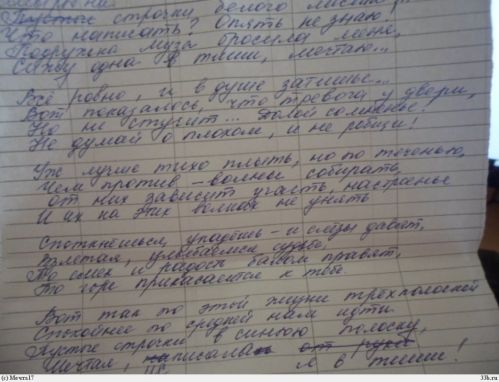 Пустые строчки белого листа
Что написать? Опять не знаю!
Подружка муза бросила меня,
Сижу одна в тиши, мечтаю...
Всё ровно, и в душе затишье...
Вот показалось, что тревога у двери,
Но не стучит... Долой сомненье!
Не думай о плохом, и не робщи!
Уж лучше тихо плыть, но по теченью,
Чем против – волны собирать,
От них зависит участь, настроенье
И их на этих волнах не унять
Споткнёшься, упадёшь – и слёзы давят,
Взлетая, улыбаемся судьбе,
То смех и радость балом правят,
То горе прикасается к тебе
Вот так по этой жизни трёхполосной
Спокойнее по средней нам идти
Пустые строчки в синюю полоску,
Мечтая, написала в тиши!
(c) Мечта17
33b.ru